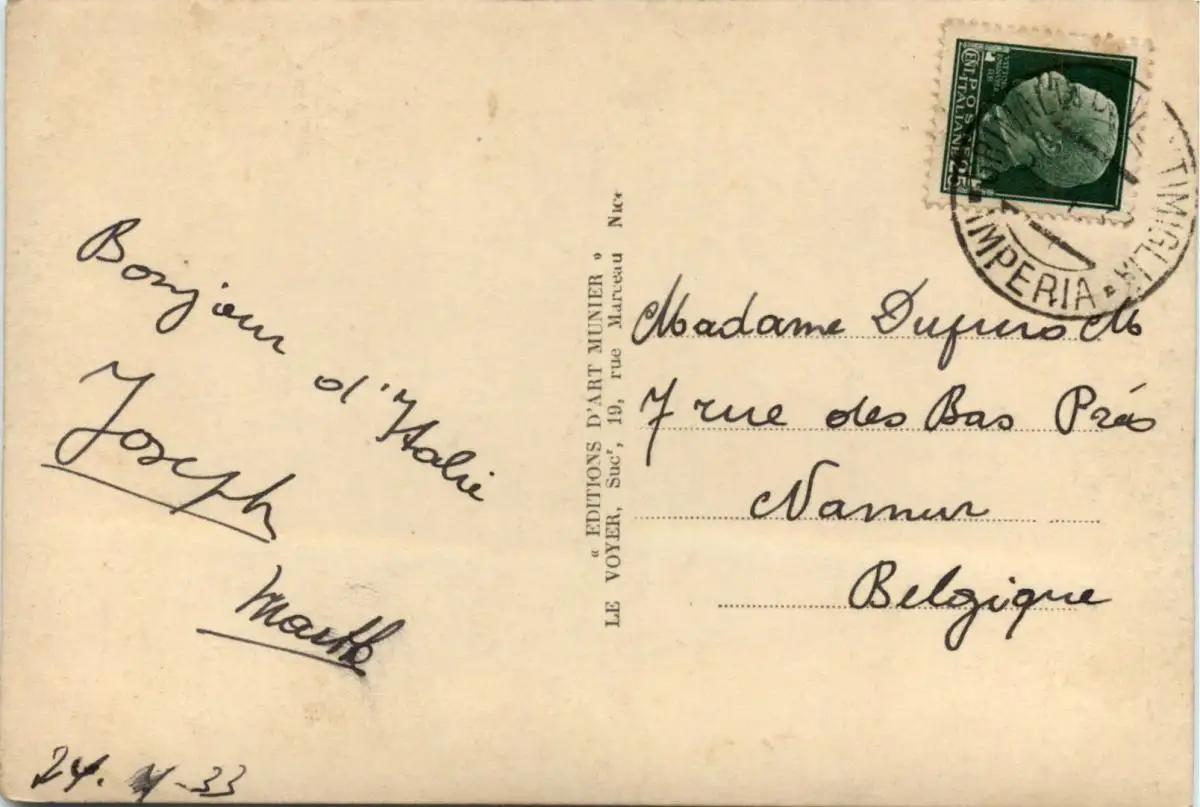 Bonjour
d'Italie
Joseph
Marthe
24. -33
« EDITIONS D'ART MUNIER »
LE VOYER, Sucr, 19, rue Marceau Nice
POSTE
ITALIANE
CENT. 25
VENTIMIGLIA
IMPERIA
Madame M
7 rue des Bas Prés
Namur
Belgique